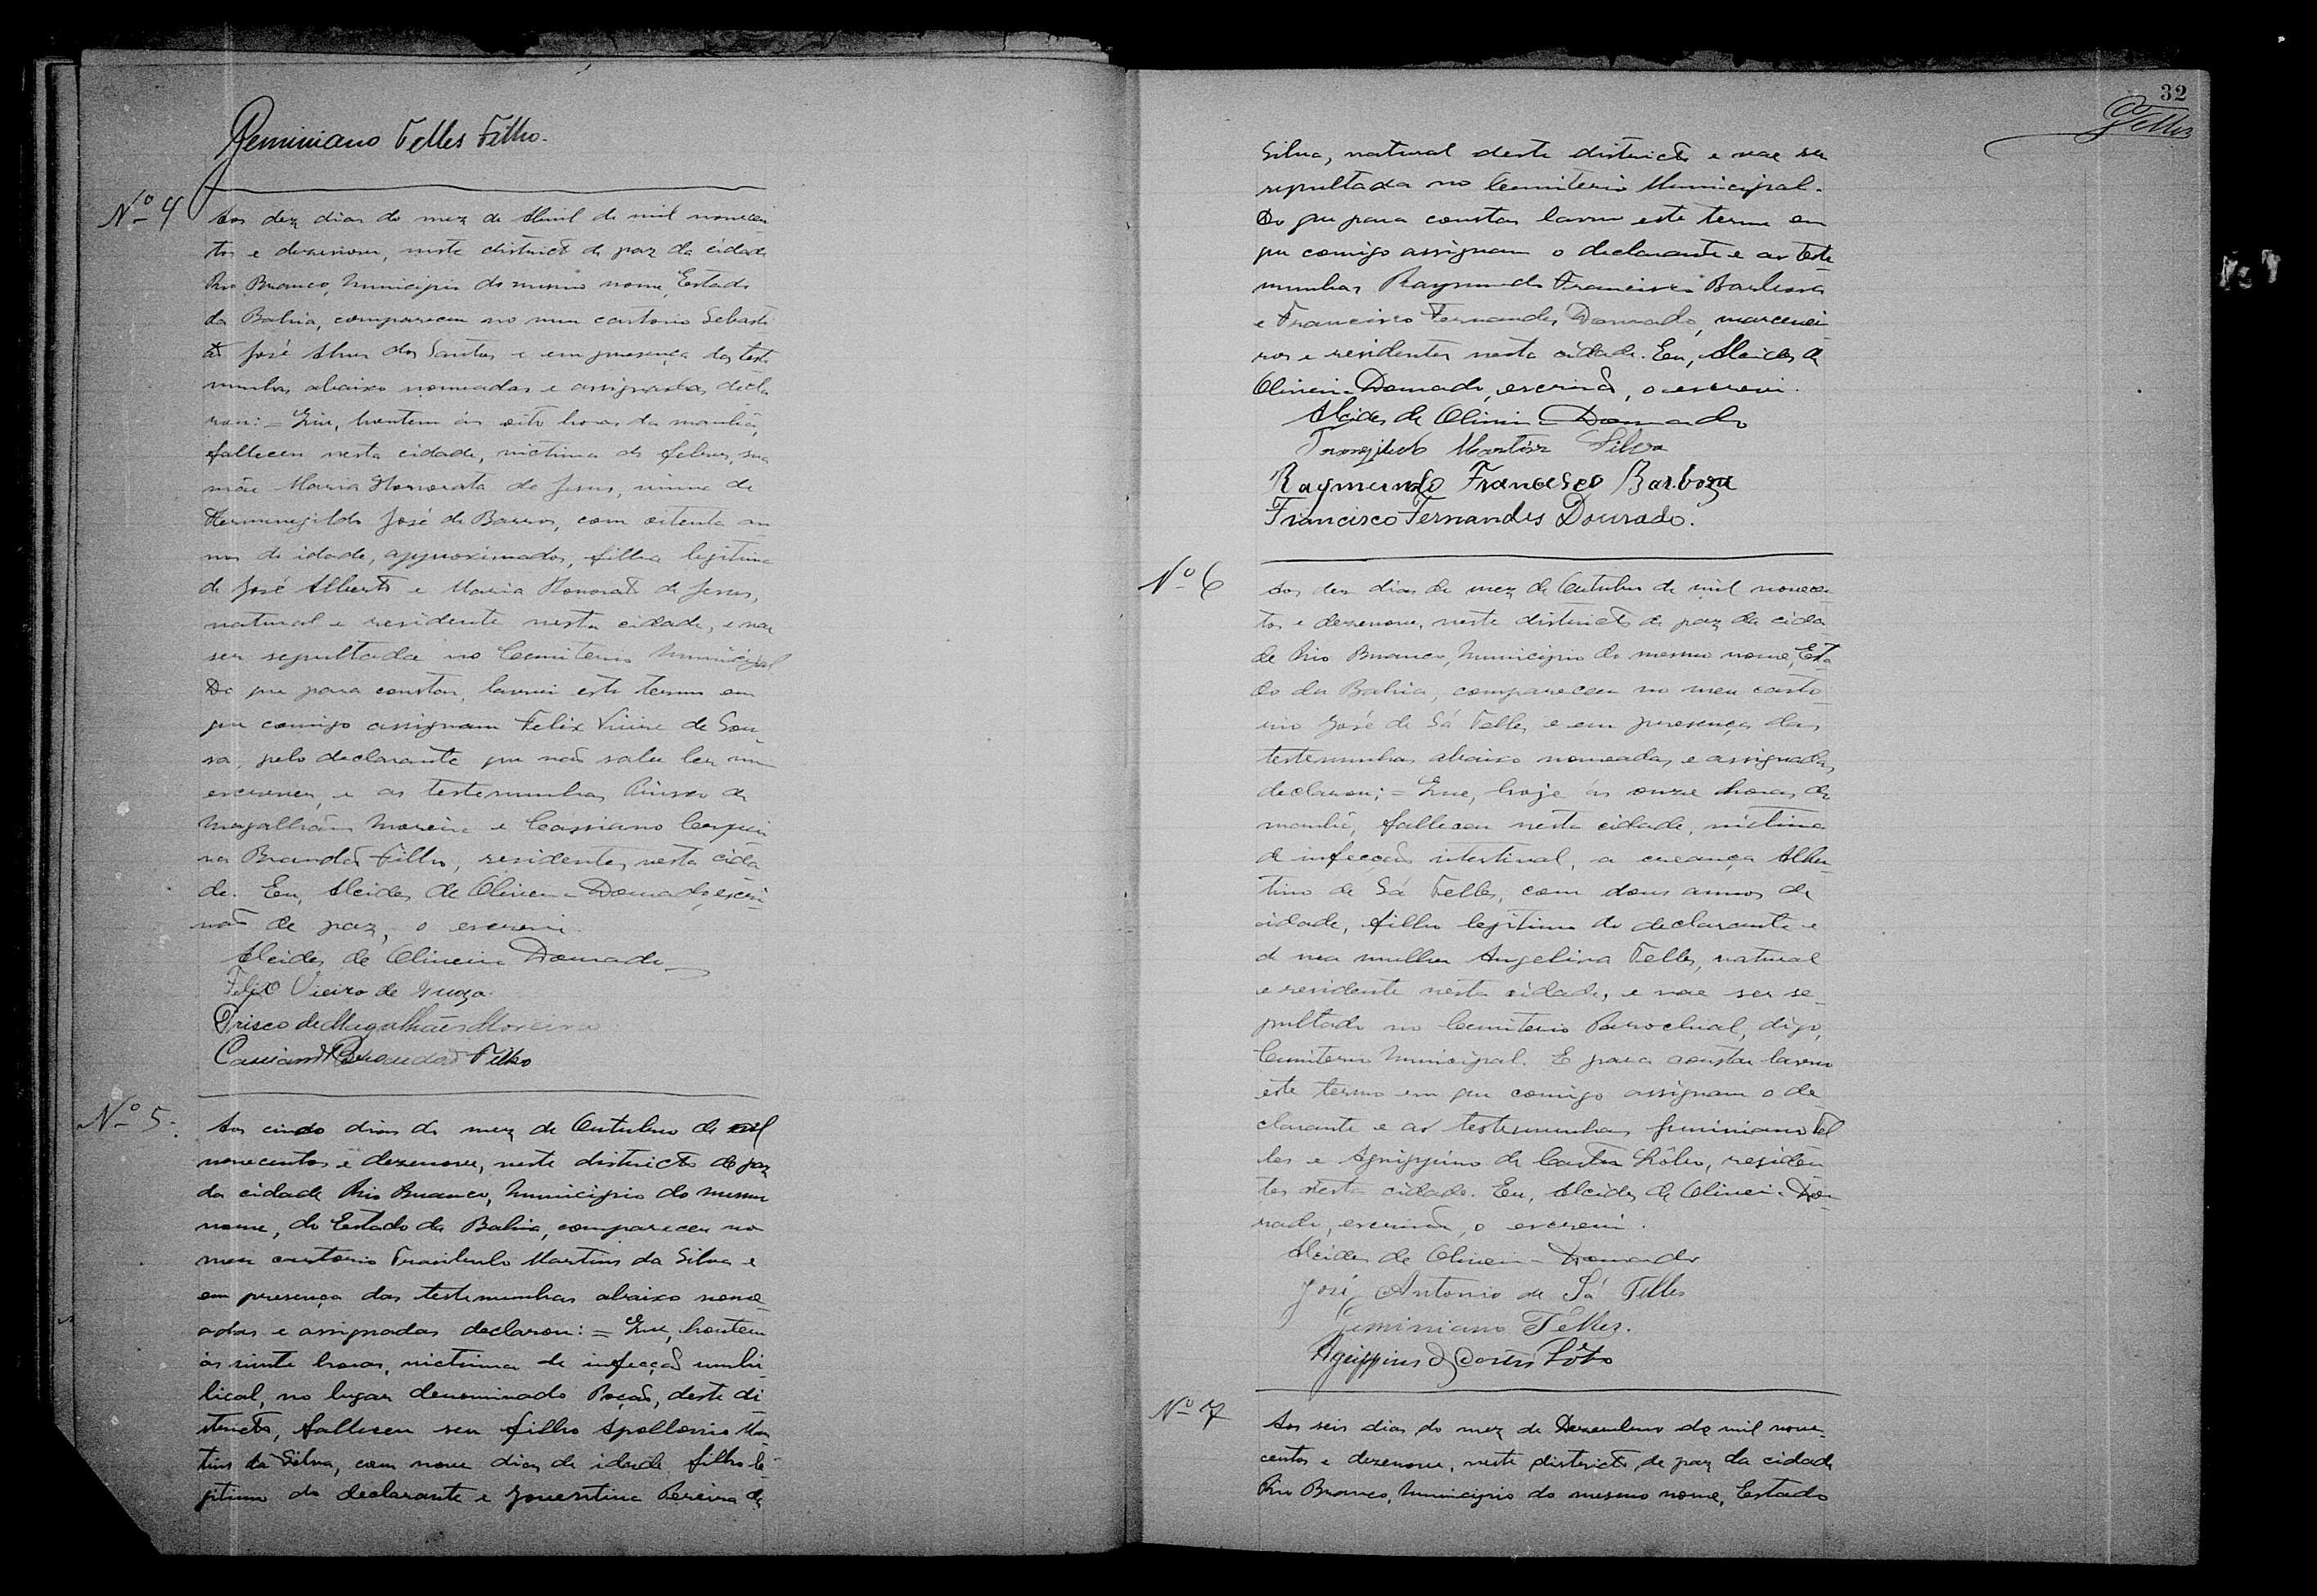 Geminiano Telles Filho.
Nº 4
Aos dez dias do mez de Abril de mil novecen-
tos e dezenove, neste districto de paz da cidade
Rio Branco, Municipio do mesmo nome, Estado
da Bahia, compareceu no meu cartorio Sebasti-
ão José Alves dos Santos e em presença das teste-
munhas abaixo nomeadas e assignadas, decla-
rou: = Que, hontem ás oito horas da manhã,
falleceu nesta cidade, victima de febres, sua
mãe Maria Honorata de Jesus, viuva de
Hermenegildo José de Barros, com oitenta an-
nos de idade, approximados, filha legitima
de José Alberto e Maria Honorata de Jesus,
natural e residente nesta cidade, e vae
ser sepultada no Cemiterio Municipal
Do que para constar, lavrei este termo em
que comigo assignam Felix Vieira de Sou-
sa, pelo declarante que não sabe ler nem
escrever, e as testemunhas Prisco de
Magalhães Moreira e Cassiano Cerquei-
ra Brandão Filho, residentes nesta cida-
de. Eu, Alcides de Oliveira Dourado, escri-
vão de paz, o escrevi.
Alcides de Oliveira Dourado
Felix Vieira de Souza
Prisco de Magalhães Moreira
Cassiano Brandão Filho
Nº 5.
Aos cinco dias do mez de Outubro de mil
novecentos e dezenove, neste districto de paz
da cidade Rio Branco, Municipio do mesmo
nome, do Estado da Bahia, compareceu no
meu cartorio Trasibulo Martins da Silva e
em presença das testemunhas abaixo nome-
adas e assignadas declarou: = Que, hontem
ás vinte horas, victima de infecção umbi-
lical, no lugar denominado Poção, deste di-
stricto, falleceu seu filho Apollonio Mar-
tins da Silva, com nove dias de idade, filho le-
gitimo do declarante e Jouventina Pereira da
32
Telles
Silva, natural deste districto e vae ser
sepultada no Cemiterio Municipal.
Do que para constar lavro este termo em
que comigo assignam o declarante e as teste-
munhas Raymundo Francisco Barbosa
e Francisco Fernandes Dourado, marcenei-
ros e residentes nesta cidade. Eu, Alcides de
Oliveira Dourado, escrivão, o escrevi.
Alcides de Oliveira Dourado
Martins Silva
Raymundo Francisco Barboza
Francisco Fernandes Dourado.
Nº 6
Aos dez dias do mez de Outubro de mil novecen-
tos e dezenove, neste districto de paz da cida-
de Rio Branco, Municipio do mesmo nome, Esta-
do da Bahia, compareceu no meu carto-
rio José de Sá Telles e em presença das
testemunhas abaixo nomeadas e assignadas,
declarou; = Que, hoje ás onze horas da
manhã, falleceu nesta cidade, victima
de infecção intestinal, a creança Alber-
tino de Sá Telles, com dous annos de
idade, filho legitimo do declarante e
de sua mulher Angelina Telles, natural
e residente nesta cidade, e vae ser se-
pultado no Cemiterio Parochial, digo,
Cemiterio Municipal. E para constar lavro
este termo em que comigo assignam o de-
clarante e as testemunhas Geminiano Tel-
les e Agrippino de Castro Lôbo, residen-
tes nesta cidade. Eu, Alcides de Oliveira Dou-
rado, escrivão, o escrevi.
Alcides de Oliveira Dourado
José Antonio de Sá Telles
Geminiano Telles.
Agrippino de Castro Lôbo
Nº 7
Aos seis dias do mez de Dezembro de mil nove-
centos e dezenove, neste districto de paz da cidade
Rio Branco, Municipio do mesmo nome, Estado